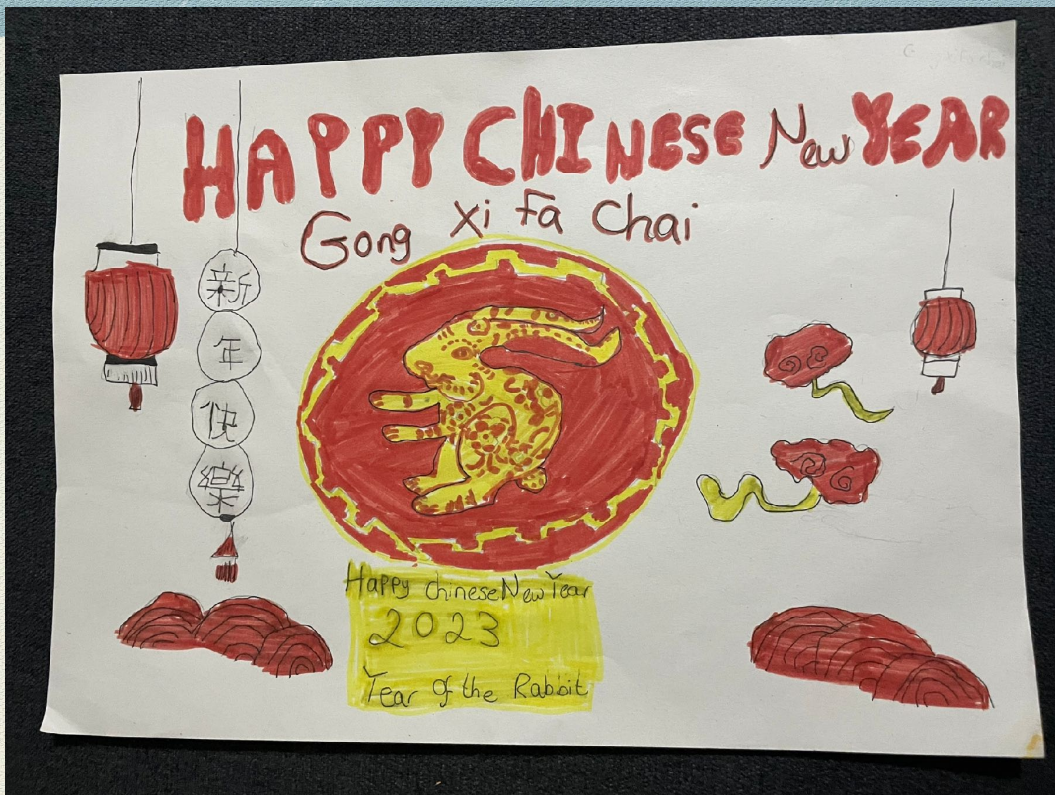 HAPPY CHINESE New YEAR
Gong Xi Fa Chai
新
年
快
樂
Happy chinese New Year
2023
Year of the Rabbit